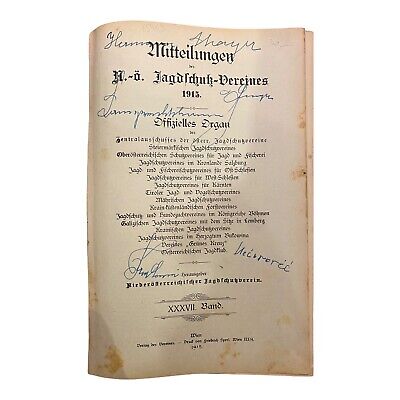 Mitteilungen
des
N.-ö. Jagdschutz-Vereines
1915.
Offizielles Organ
des
Zentralausschusses der österr. Jagdschutzvereine
Steiermärkischen Jagdschutzvereines
Oberösterreichischen Schutzvereines für Jagd und Fischerei
Jagdschutzvereines im Kronlande Salzburg
Jagd- und Fischereischutzvereines für Ost-Schlesien
Jagdschutzvereines für West-Schlesien
Jagdschutzvereines für Kärnten
Tiroler Jagd- und Vogelschutzvereines
Mährischen Jagdschutzvereines
Krain-küstenländischen Forstvereines
Jagdschutz- und Hundezuchtvereines im Königreiche Böhmen
Galizischen Jagdschutzvereines mit dem Sitz in Lemberg
Krainischen Jagdschutzvereines
Jagdschutzvereines im Herzogtum Bukowina
Vereines „Grünes Kreuz"
Oesterreichischen Jagdklub.
Herausgeber
Niederösterreichischer Jagdschutzverein.
XXXVII. Band.
Wien
Verlag des Vereines. — Druck von Friedrich
1915.